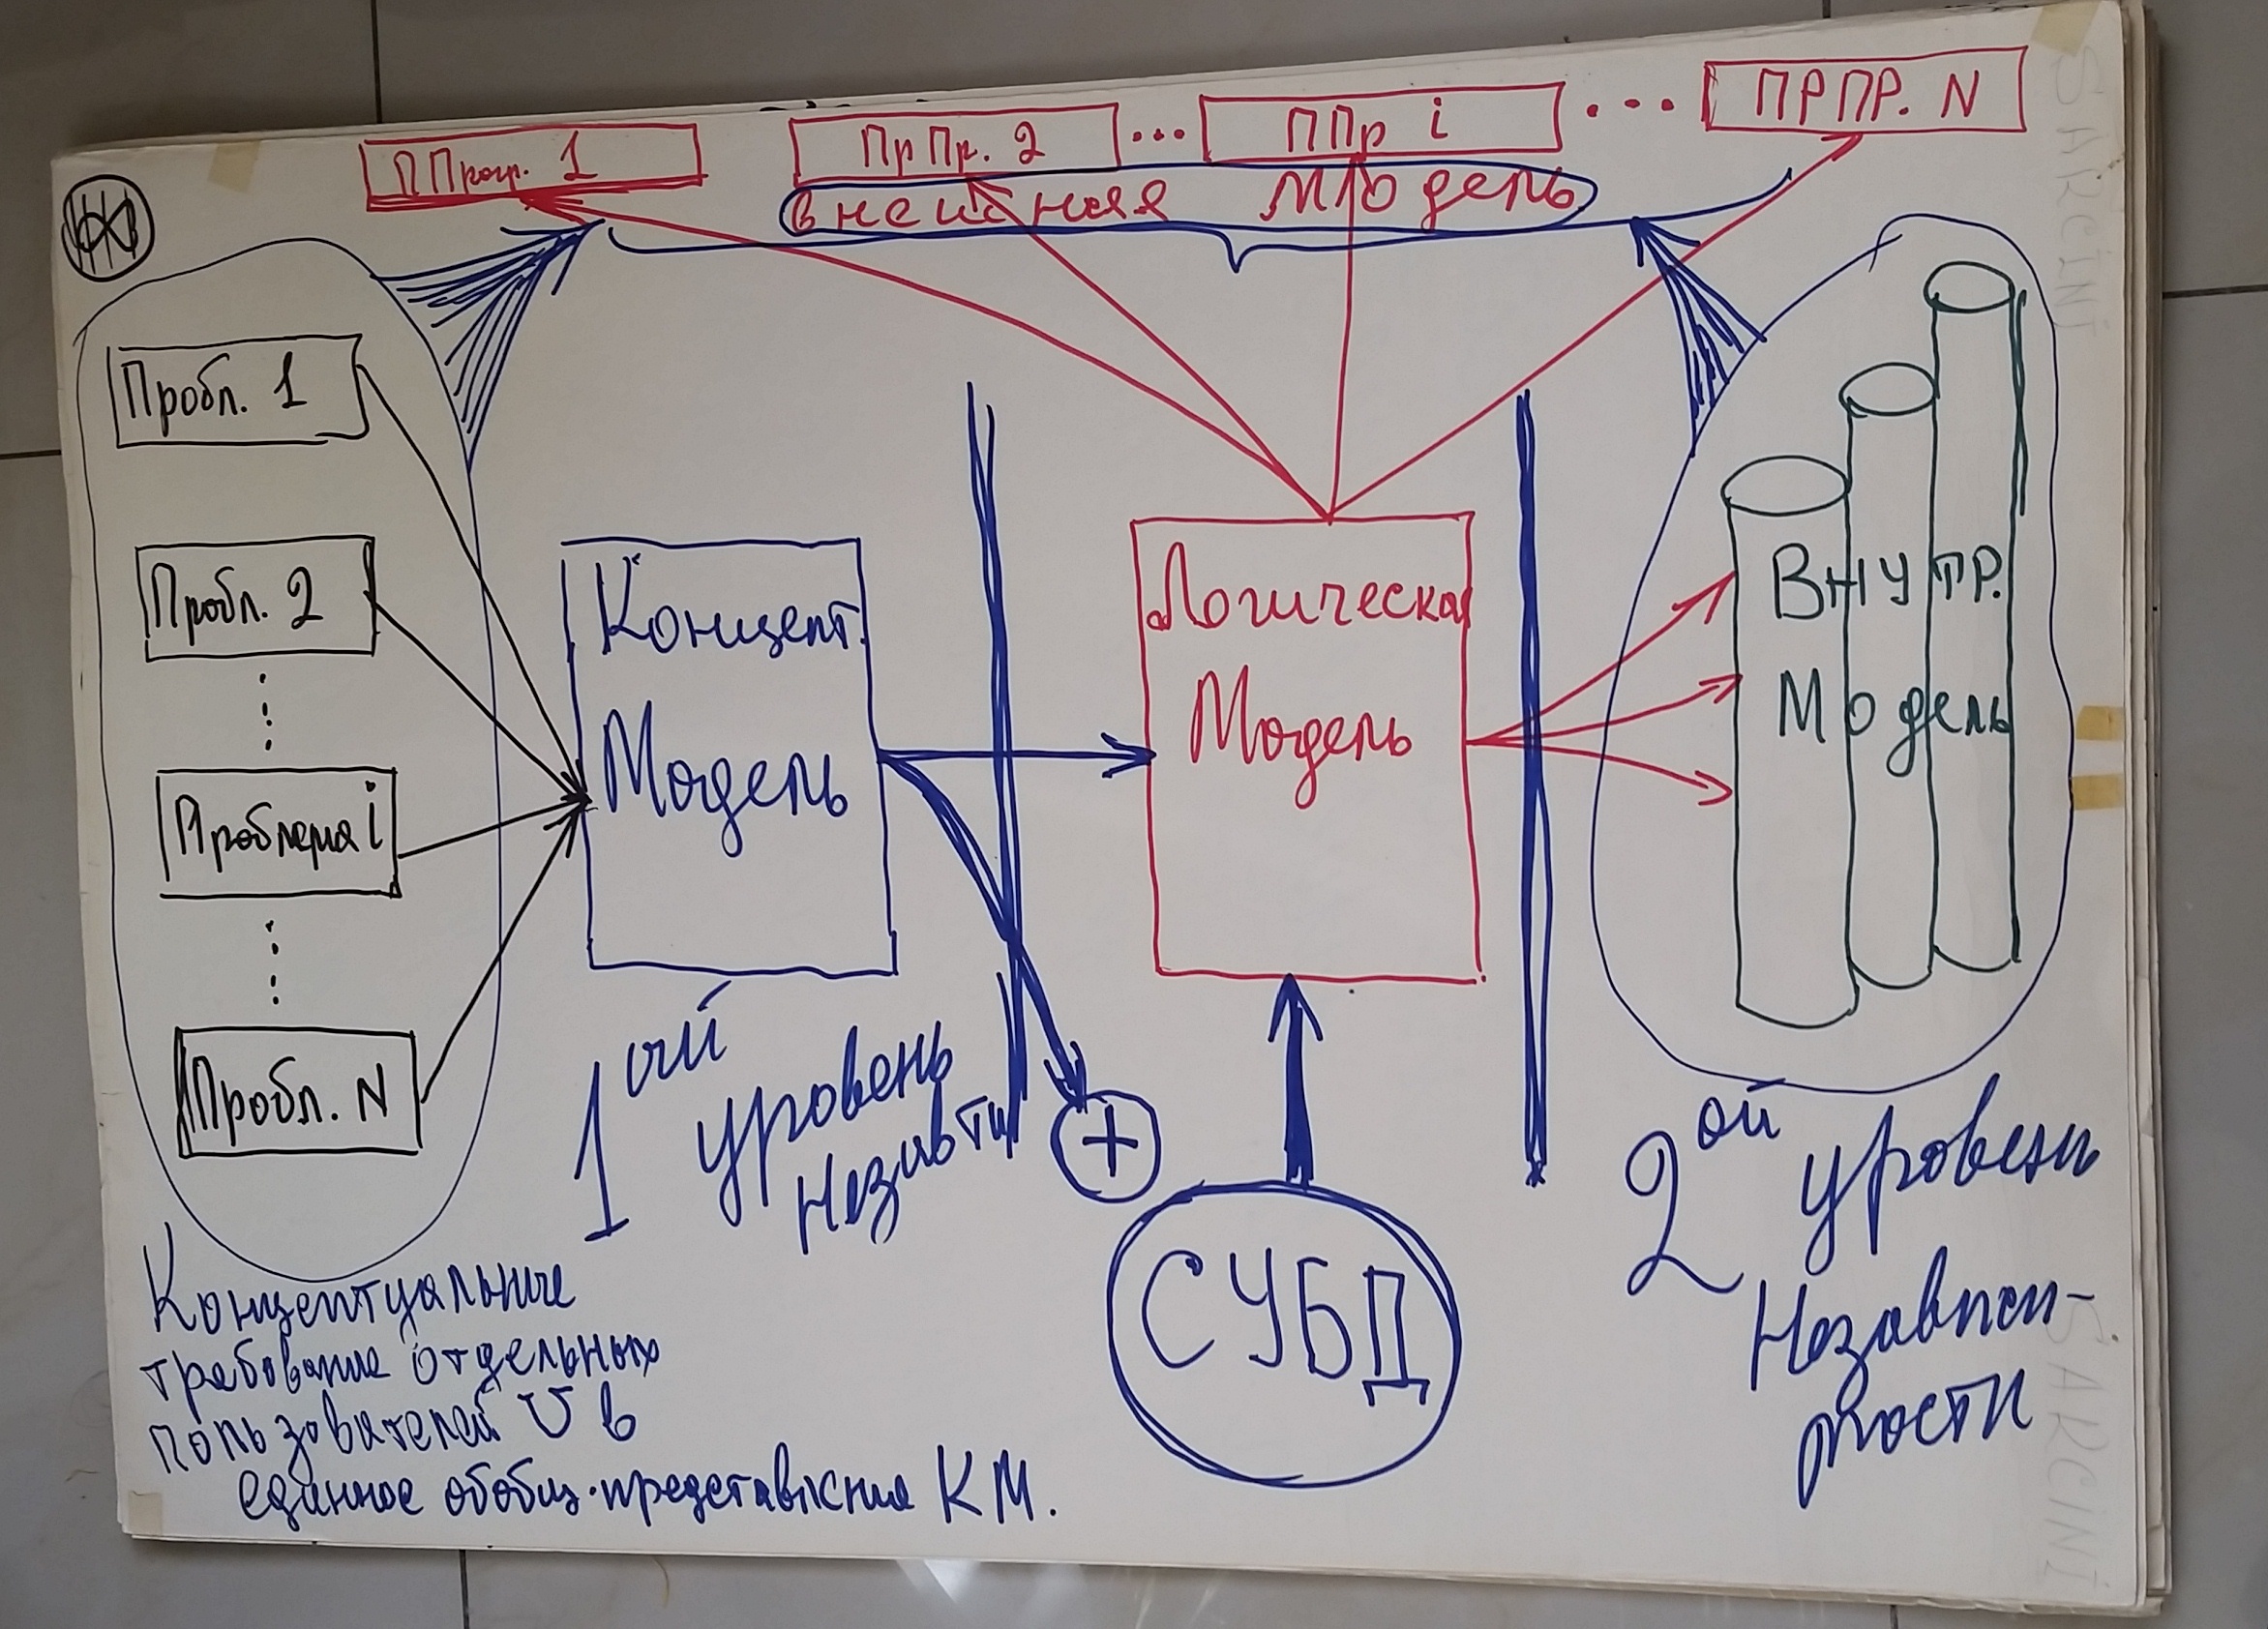 ППрогр. 1
ПрПр. 2 ...
ППр i ...
ПРПР. N
внешняя модель
Пробл. 1
Пробл. 2
Проблема i
Пробл. N
Концепт.
Модель
Логическая
Модель
Внутр.
Модель
1ый
уровень
Незавти
+
СУБД
2ой
уровень
Независи-
мости
Концептуальные
требование отдельных
пользователей U в
единное обобщ. представление КМ.
SARCINI
SARCINI